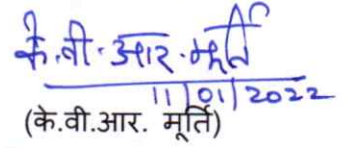 के.वी.आर.मूर्ति
11/01/2022
(के.वी.आर. मूर्ति)